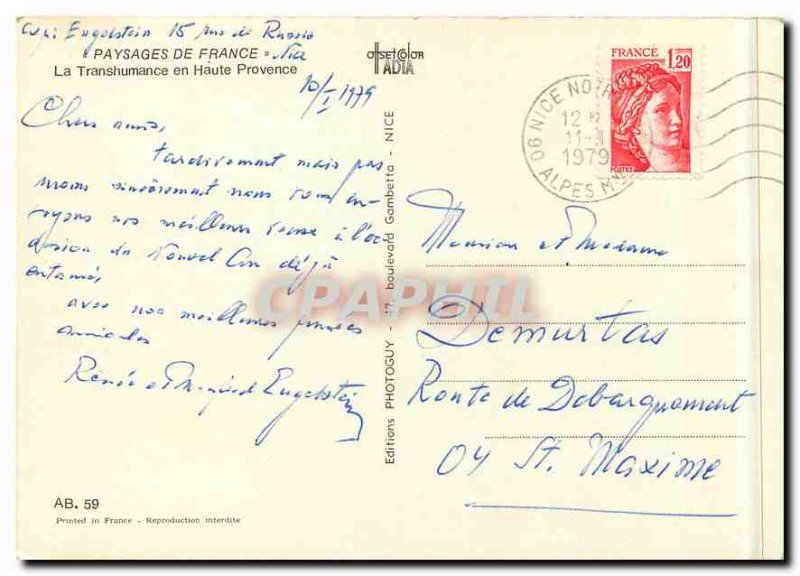 Engelstein 15 rue de Russie
"PAYSAGES DE FRANCE" Nice
La Transhumance en Haute Provence
OFFSETCOLOR
IADIA
10/I 1979
Chers amis,
tardivement mais pas
moins sincèrement nous vous en-
voyons nos meilleurs vœux à l'oc
casion du Nouvel An déjà
entamé,
avec nos meilleures pensées
amicales
Renée et Engelstein
AB. 59
Printed in France - Reproduction interdite
Editions PHOTOGUY - 17, boulevard Gambetta - NICE
FRANCE 1,20
POSTES
06 NICE
12 H
11-1
1979
ALPES M
Monsieur et Madame
Demurtas
Route de Debarquement
04 St. Maxime
CPAPHIL